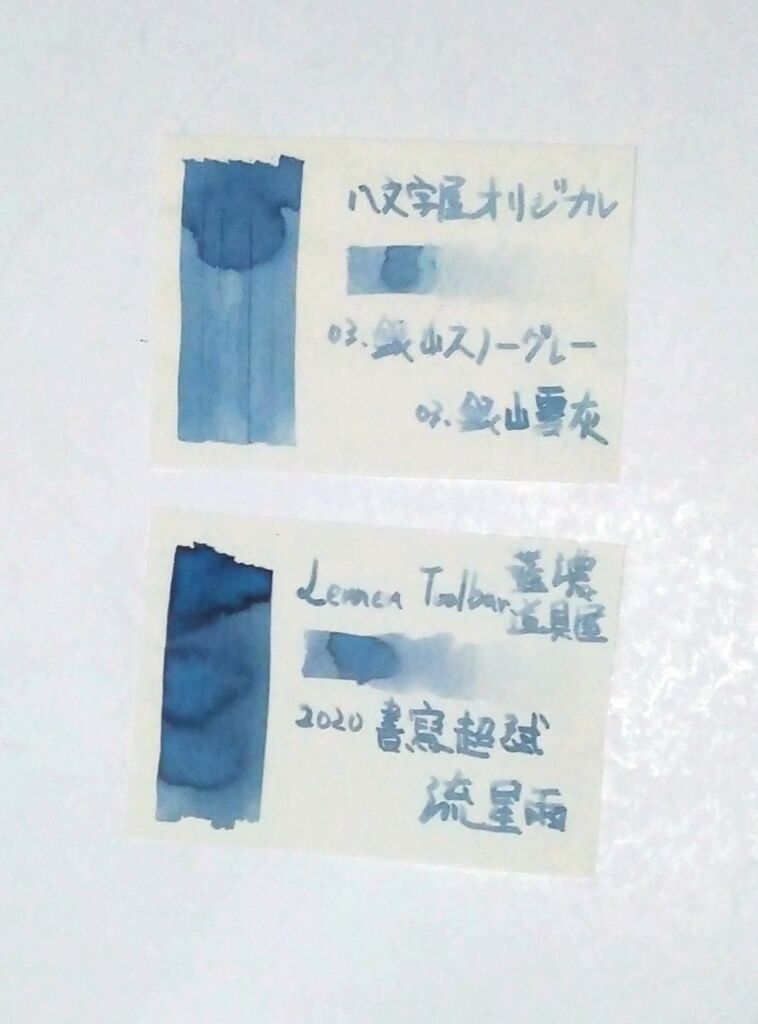 八文字屋オリジナル
03.銀山スノーグレー
03.銀山雪灰
Lennon Toolbar 藍濃
道具屋
2020 書寫超試
流星雨